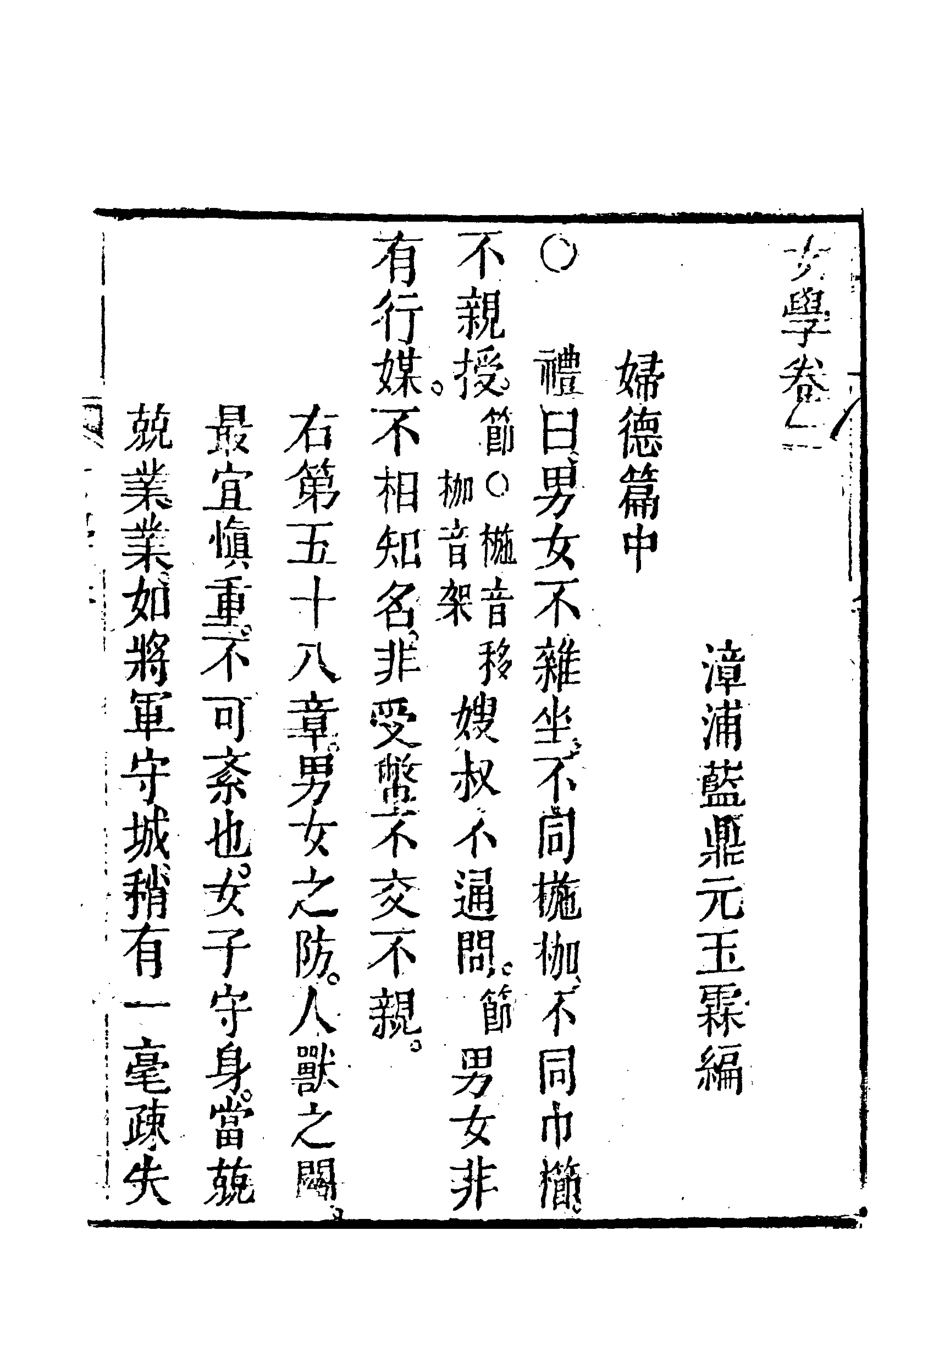 女學卷二
漳浦藍鼎元玉霖編
婦德篇中
○禮曰男女不雜坐不同椸枷不同巾櫛
不親授節○椸音移枷音架嫂叔不通問節男女非
有行媒不相知名非受幣不交不親
右第五十八章男女之防人獸之關
最宜慎重不可紊也女子守身當兢
兢業業如將軍守城稍有一毫疎失